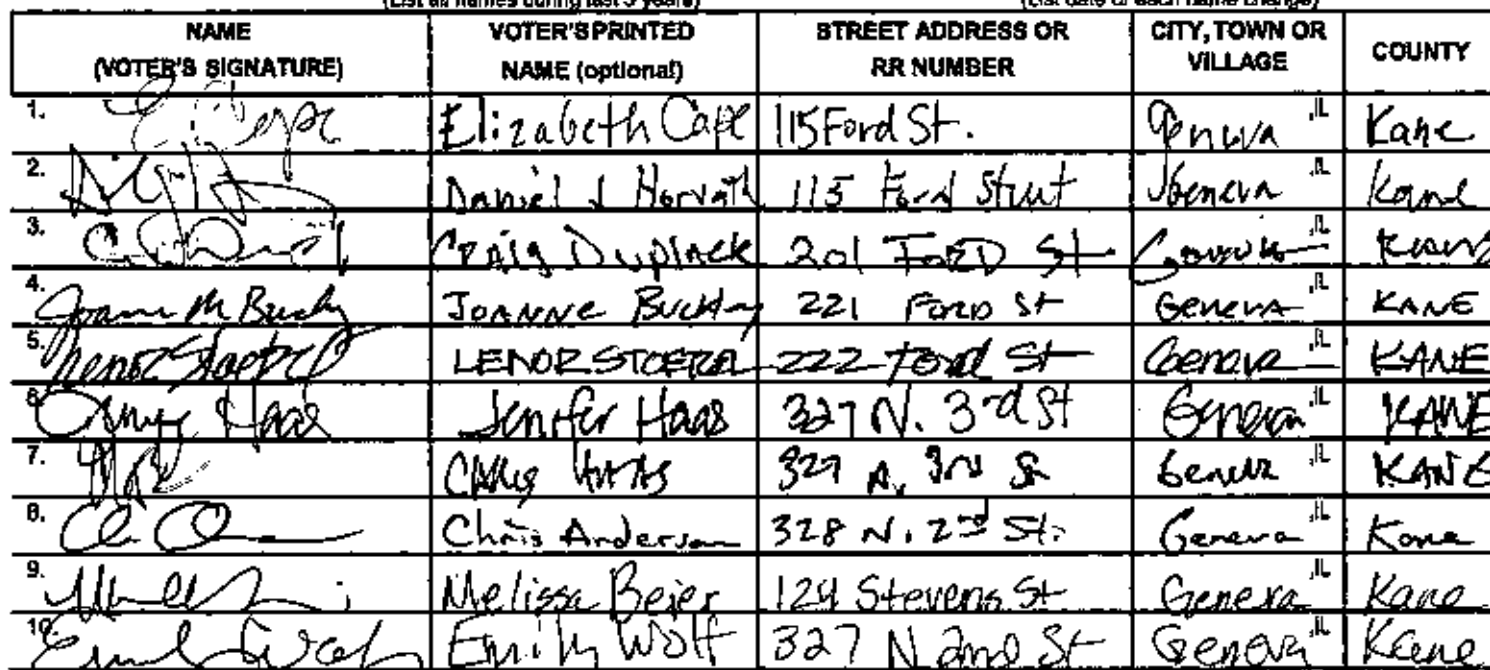 (List all names during last 3 years) (List date of each name change)
NAME (VOTER'S SIGNATURE) VOTER'S PRINTED NAME (optional) STREET ADDRESS OR RR NUMBER CITY, TOWN OR VILLAGE COUNTY
1. Elizabeth Cape 115 Ford St. Geneva ,IL Kane
2. Daniel J Horvath 115 Ford Street Geneva ,IL Kane
3. Craig Duplack 201 FORD St Geneva ,IL Kane
4. Joanne M Buckley JOANNE Buckley 221 FORD St Geneva ,IL KANE
5. LENOR 222 Ford St Geneva ,IL KANE
6. Haas Jennifer Haas 327 N. 3rd St Geneva ,IL KANE
7. Craig HAAS 327 N. 3rd St Geneva ,IL KANE
8. Chris Anderson 328 N. 2nd St. Geneva ,IL Kane
9. Melissa Beier 124 Stevens St Geneva ,IL Kane
10. Emily Wolf Emily Wolf 327 N 2nd St Geneva ,IL Kane